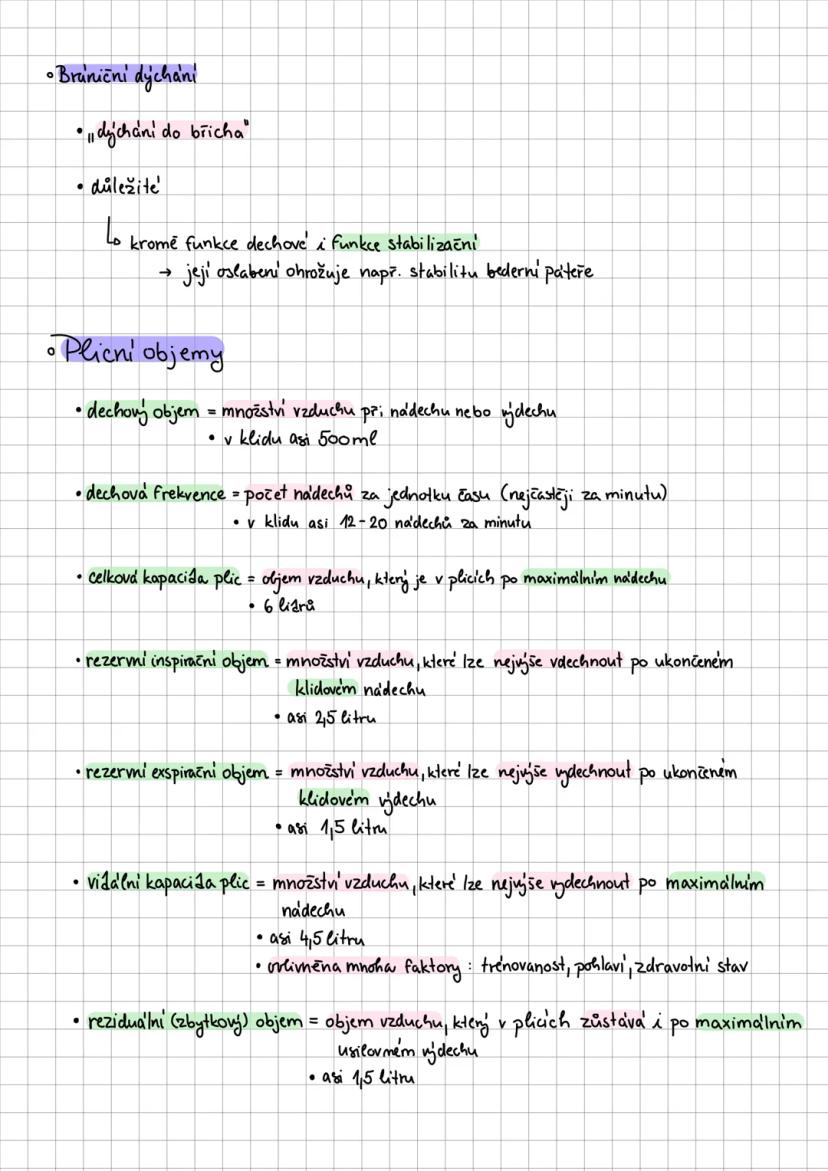 ◦ Brániční dýchání
• „dýchání do břicha"
• důležité
↳ kromě funkce dechové i funkce stabilizační
→ její oslabení ohrožuje např. stabilitu bederní páteře
◦ Plicní objemy
• dechový objem = množství vzduchu při nádechu nebo výdechu
• v klidu asi 500 ml
• dechová frekvence = počet nádechů za jednotku času (nejčastěji za minutu)
• v klidu asi 12-20 nádechů za minutu
• celková kapacita plic = objem vzduchu, který je v plicích po maximálním nádechu
• 6 litrů
• rezervní inspirační objem = množství vzduchu, které lze nejvýše vdechnout po ukončeném
klidovém nádechu
• asi 2,5 litru
• rezervní exspirační objem = množství vzduchu, které lze nejvýše vydechnout po ukončeném
klidovém výdechu
• asi 1,5 litru
• vitální kapacita plic = množství vzduchu, které lze nejvýše vydechnout po maximálním
nádechu
• asi 4,5 litru
• ovlivněna mnoha faktory : trénovanost, pohlaví, zdravotní stav
• reziduální (zbytkový) objem = objem vzduchu, který v plicích zůstává i po maximálním
usilovném výdechu
• asi 1,5 litru